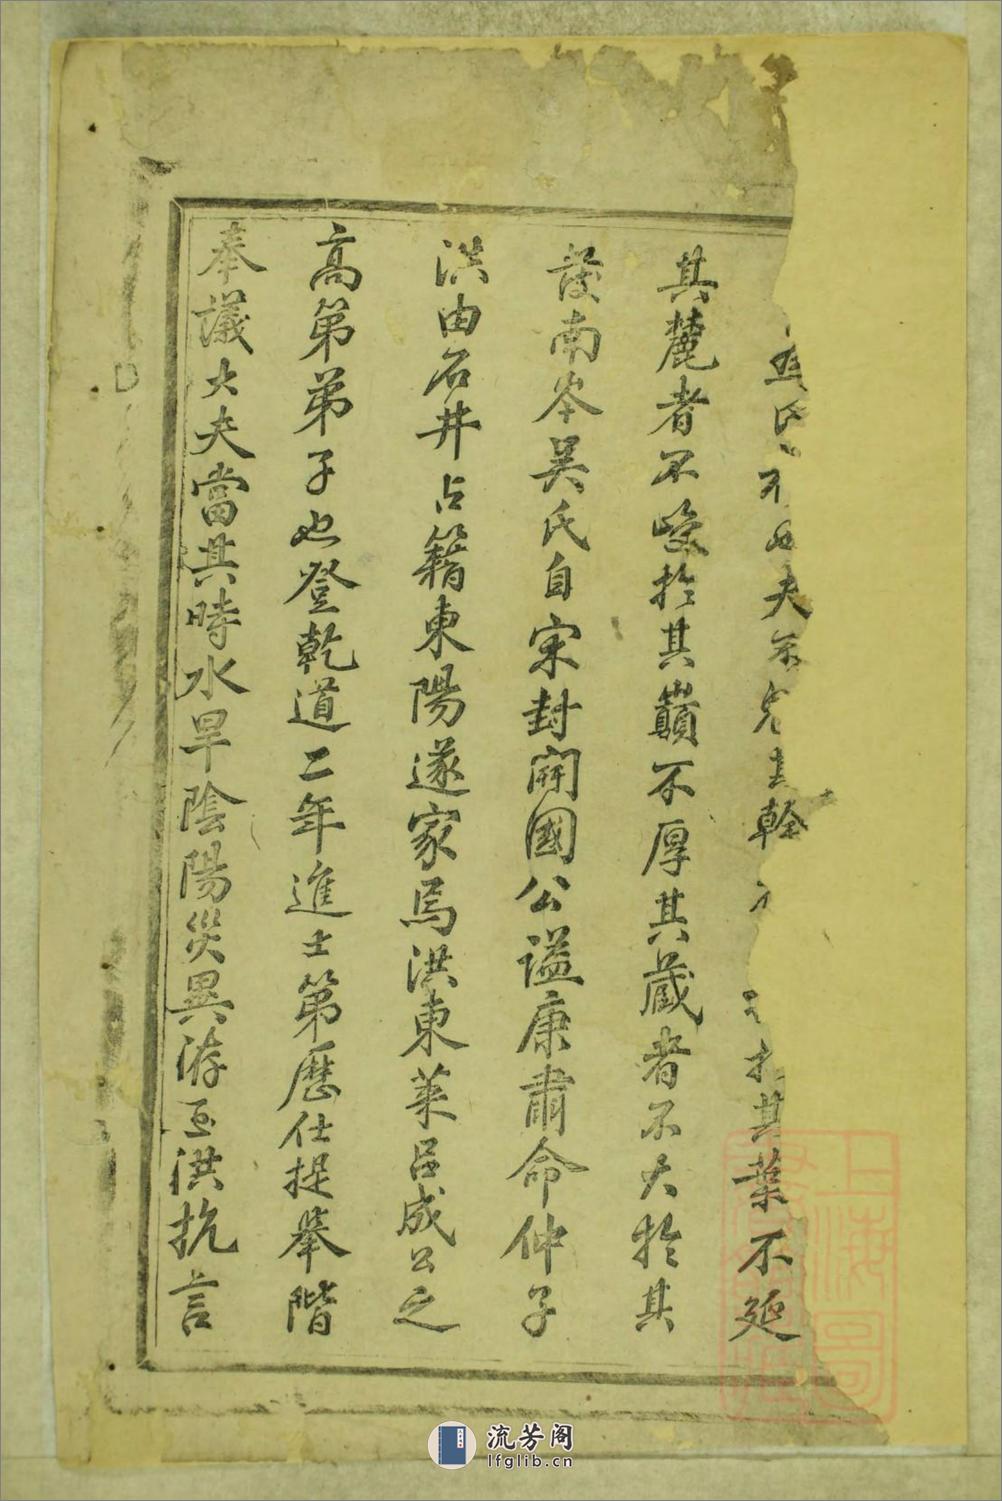 夫 幹 其葉不延
其麓者不峻於其巔不厚其蔵者不大於其
南岑吴氏自宋封開國公謚康肅命仲子
洪由石井占籍東陽遂家焉洪東萊吕成公之
高第弟子也登乾道二年進士第歷仕提舉階
奉議大夫當其時水旱陰陽災異洊至洪抗言
上海圖
流芳阁
lfglib.cn